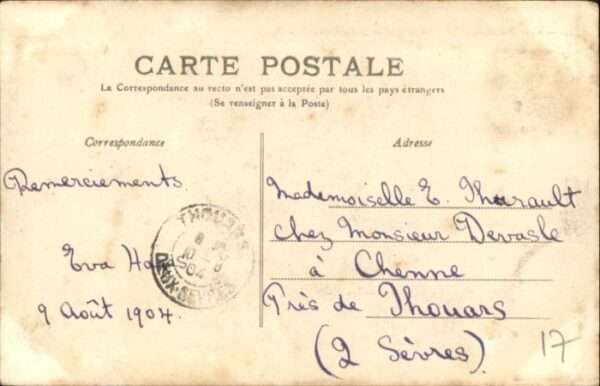 CARTE POSTALE
La Correspondance au recto n'est pas acceptée par tous les pays étrangers
(Se renseigner à la Poste)
Correspondance
Remerciements.
Eva
9 Août 1904.
THOUARS
DEUX-SÈVRES
Adresse
Mademoiselle E. Tharault
chez Monsieur Devasle
à Chenne
Près de Thouars
(2 Sèvres).
17